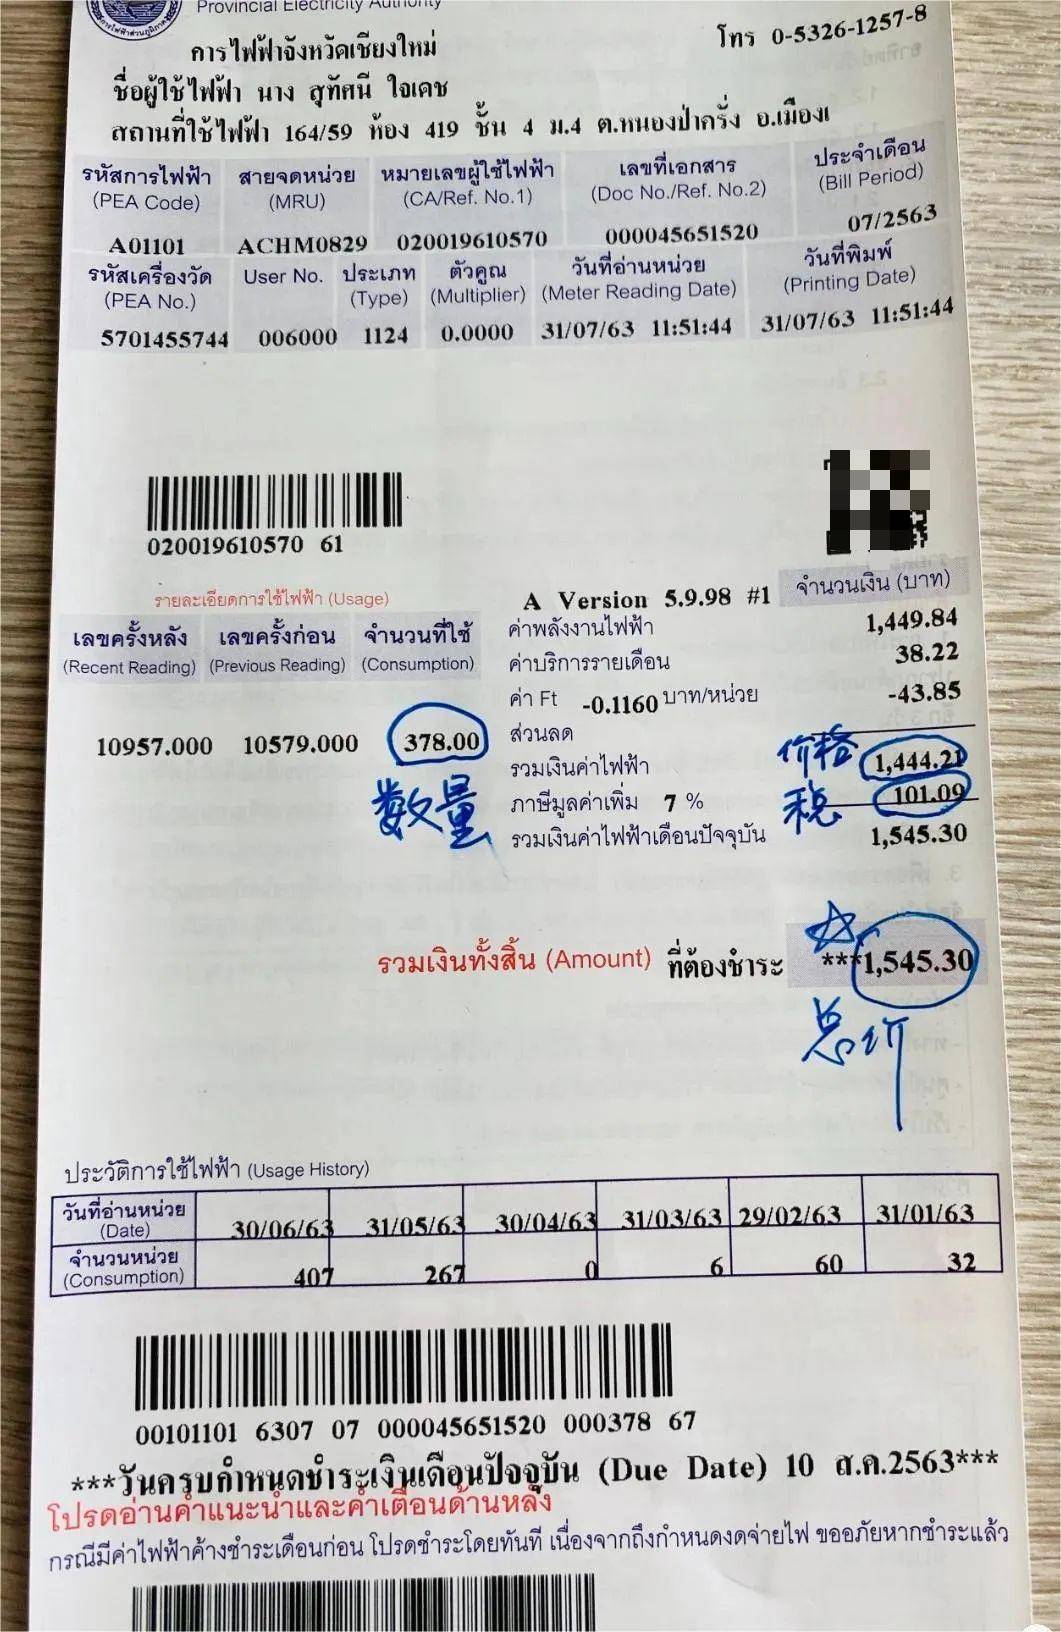 Provincial Electricity Authority
การไฟฟ้าจังหวัดเชียงใหม่
โทร 0-5326-1257-8
ชื่อผู้ใช้ไฟฟ้า นาง สุทัศนี ใจเดช
สถานที่ใช้ไฟฟ้า 164/59 ห้อง 419 ชั้น 4 ม.4 ต.หนองป่าครั่ง อ.เมืองเ
รหัสการไฟฟ้า สายจดหน่วย หมายเลขผู้ใช้ไฟฟ้า เลขที่เอกสาร ประจำเดือน
(PEA Code) (MRU) (CA/Ref. No.1) (Doc No./Ref. No.2) (Bill Period)
A01101 ACHM0829 020019610570 000045651520 07/2563
รหัสเครื่องวัด User No. ประเภท ตัวคูณ วันที่อ่านหน่วย วันที่พิมพ์
(PEA No.) (Type) (Multiplier) (Meter Reading Date) (Printing Date)
5701455744 006000 1124 0.0000 31/07/63 11:51:44 31/07/63 11:51:44
020019610570 61
รายละเอียดการใช้ไฟฟ้า (Usage)
A Version 5.9.98 #1 จำนวนเงิน (บาท)
เลขครั้งหลัง เลขครั้งก่อน จำนวนที่ใช้
(Recent Reading) (Previous Reading) (Consumption)
10957.000 10579.000 378.00
数量
ค่าพลังงานไฟฟ้า 1,449.84
ค่าบริการรายเดือน 38.22
ค่า Ft -0.1160 บาท/หน่วย -43.85
ส่วนลด
รวมเงินค่าไฟฟ้า 价格 1,444.21
ภาษีมูลค่าเพิ่ม 7 % 税 101.09
รวมเงินค่าไฟฟ้าเดือนปัจจุบัน 1,545.30
รวมเงินทั้งสิ้น (Amount) ที่ต้องชำระ ***1,545.30
总价
ประวัติการใช้ไฟฟ้า (Usage History)
วันที่อ่านหน่วย (Date) 30/06/63 31/05/63 30/04/63 31/03/63 29/02/63 31/01/63
จำนวนหน่วย (Consumption) 407 267 0 6 60 32
00101101 6307 07 000045651520 000378 67
***วันครบกำหนดชำระเงินเดือนปัจจุบัน (Due Date) 10 ส.ค.2563***
โปรดอ่านคำแนะนำและคำเตือนด้านหลัง
กรณีมีค่าไฟฟ้าค้างชำระเดือนก่อน โปรดชำระโดยทันที เนื่องจากถึงกำหนดงดจ่ายไฟ ขออภัยหากชำระแล้ว